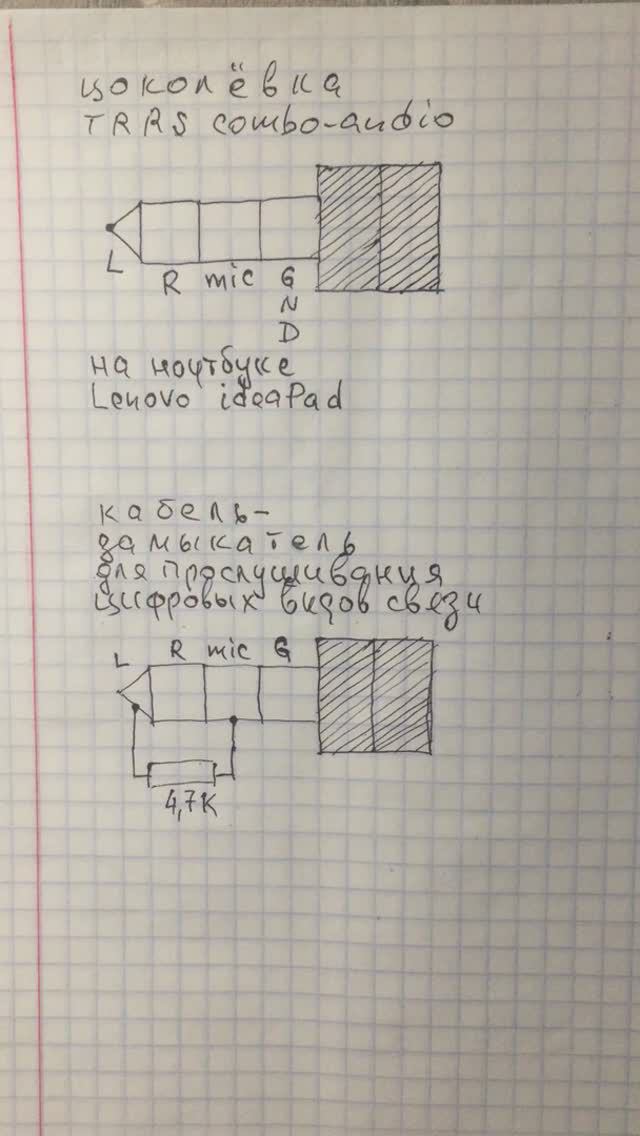 цоколёвка
TRRS combo-audio
L
R mic G
N
D
на ноутбуке
Lenovo ideaPad
кабель-
замыкатель
для прослушивания
цифровых видов связи
L R mic G
4,7К